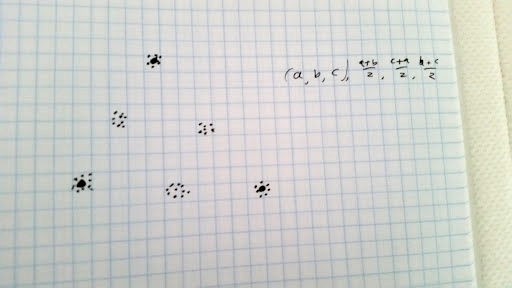 (a, b, c), a+b/2, c+a/2, b+c/2